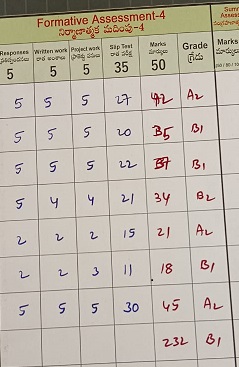 Formative Assessment-4
నిర్మాణాత్మక మదింపు-4
Responses Written work Project work Slip Test Marks Grade Marks
రాత అంశాలు రాత పరీక్ష మార్కులు గ్రేడు
5 5 5 35 50
5 5 5 27 42 A2
5 5 5 20 35 B1
5 5 5 22 37 B1
5 4 4 21 34 B2
2 2 2 15 21 A2
2 2 3 11 18 B1
5 5 5 30 45 A2
232 B1